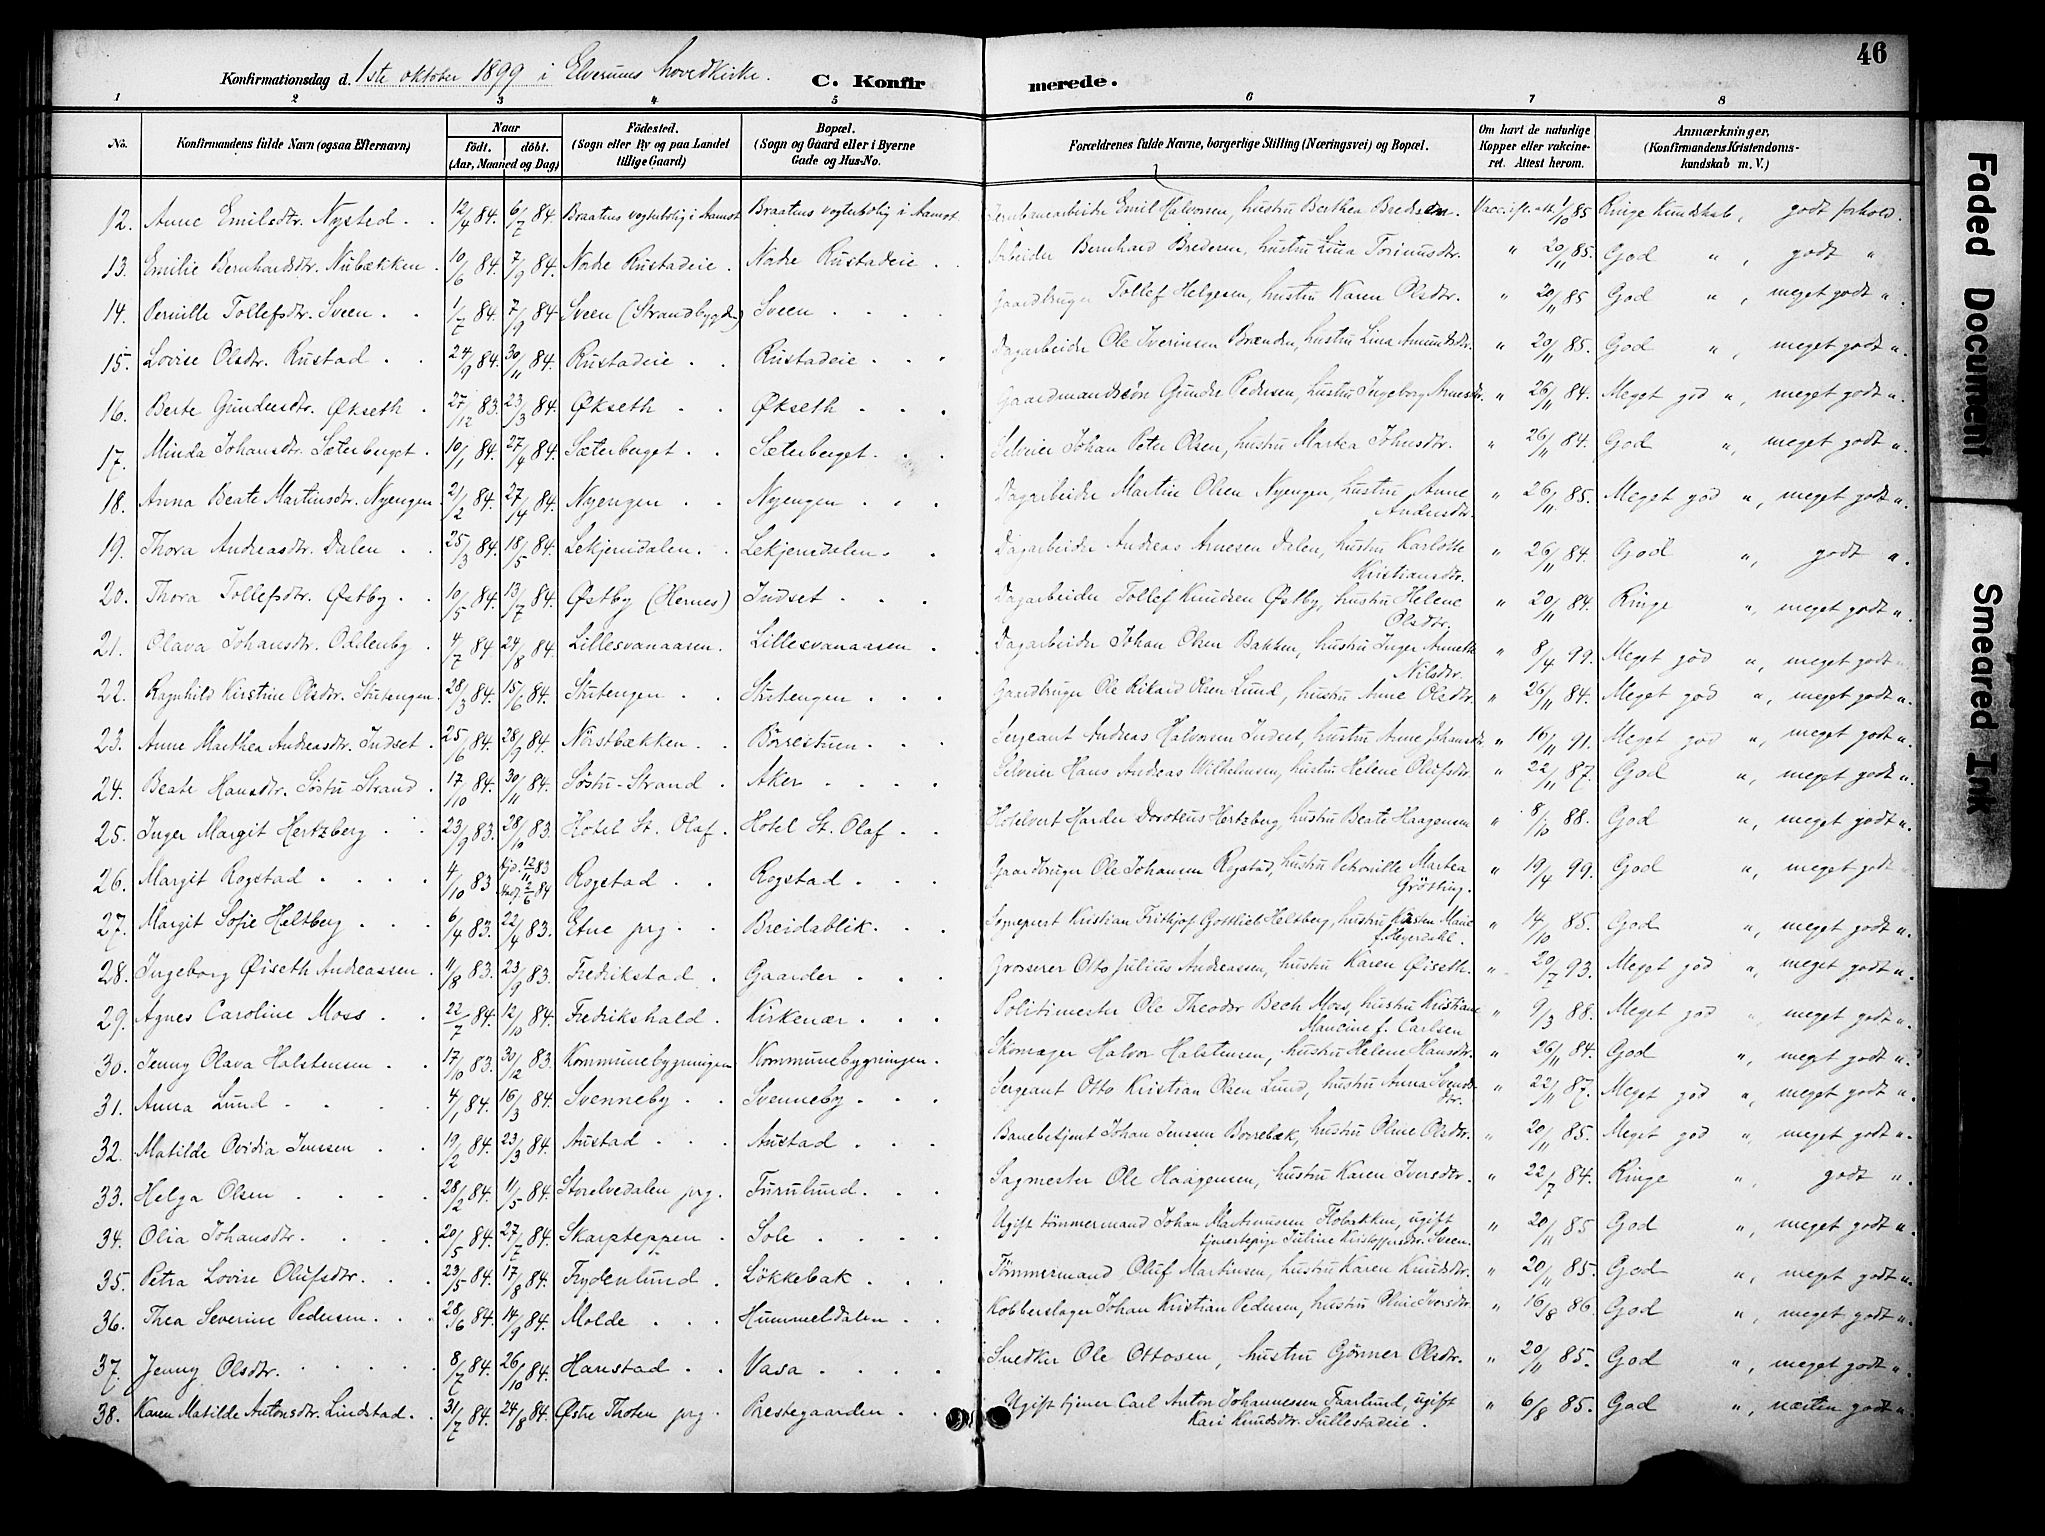 46
Konfirmationsdag d. 1ste oktober 1899 i Elverums hovedkirke. C. Konfirmerede.
1 2 3 4 5 6 7 8
No. Konfirmandens fulde Navn (ogsaa Efternavn) Naar födt. döbt. (Aar, Maaned og Dag) Födested. (Sogn eller By og paa Landet tillige Gaard) Bopæl. (Sogn og Gaard eller i Byerne Gade og Hus-No. Forældrenes fulde Navne, borgerlige Stilling (Næringsvei) og Bopæl. Om havt de naturlige Kopper eller vakcineret. Attest herom. Anmærkninger, (Konfirmandens Kristendomskundskab m. V.)
12. Anne Emilsdtr. Nysted. 12/4 84. 6/7 84. Braatens vogterbolig i Aamot Braatens vogterbolig i Aamot Jernbanearbeider Emil Halvorsen, hustru Berthea Bredesen. Vacc. ifl. att. 1/10 85 Ringe Kundskab, godt forhold.
13. Emilie Bernhardsdtr. Nubækken 10/6 84. 7/9 84. Nodre Rustadeie Nodre Rustadeie Arbeider Bernhard Bredesen, hustru Lina Torinusdtr. " 20/11 85. God ", godt "
14. Pernille Tollefsdtr. Sveen 1/7 84. 7/9 84 Sveen (Strandbygden) Sveen Gaardbruger Tollef Helgesen, hustru Karen Olsdtr. " 20/11 85 God ", meget godt ".
15. Lovise Olsdtr. Rustad 24/9 84. 30/11 84. Rustadeie Rustadeie Dagarbeider Ole Iverinsen Brænden, hustru Lina Amundsdtr. " 20/11 85. God ", meget godt ".
16. Berte Gundersdtr. Økseth 27/12 83. 23/3 84. Økseth Økseth Gaardmandssön Gunder Pedersen, hustru Ingeborg Arnesdtr. " 26/11 84. Meget god ", meget godt ".
17. Minda Johansdtr. Sæterberget 10/1 84. 27/4 84. Sæterberget Sæterberget Selveier Johan Peter Olsen, hustru Martea Johnsdtr. " 26/11 84. God ", meget godt ".
18. Anna Beate Martinsdtr. Nyengen 21/2 84. 27/4 84. Nyengen Nyengen Dagarbeider Martin Olsen Nyengen, hustru Anne Andersdtr. " 26/11 85. Meget god ", meget godt ".
19. Thora Andreasdtr. Dalen 25/3 84. 18/5 84. Lekjemdalen Lekjemdalen Dagarbeider Andreas Arnesen Dalen, hustru Karlotte Kristiansdtr. " 26/11 84. God ", godt "
20. Thora Tollefsdtr. Østby 10/5 84. 13/7 84. Østby (Hernes) Indset Dagarbeider Tollef Knudsen Østby, hustru Helene Olsdtr. " 20/11 84. Ringe ", meget godt ".
21. Olava Johansdtr. Oldenby 4/7 84 24/8 84. Lillesvanaasen Lillesvanaasen Dagarbeider Johan Olsen Bakken, hustru Inger Annette Nilsdtr. " 8/4 99. Meget god ", meget godt ".
22. Ragnhild Kirstine Olsdtr. Stutengen 28/3 84. 15/6 84. Stutengen Stutengen Gaardbruger Ole Rikard Olsen Lund, hustru Anne Olsdtr. " 26/11 84. Meget god ", meget godt ".
23. Anne Marthea Andreasdtr. Indset 25/6 84. 28/9 84. Nörstbækken Börrestuen Sergeant Andreas Halvorsen Indset, hustru Anne Johansdtr. " 16/11 91. Meget god ", meget godt ".
24. Beate Hansdtr. Söstu-Strand 17/10 84. 30/11 84. Söstu-Strand Aker Selveier Hans Andreas Wilhelmsen, hustru Helene Olufsdtr. " 22/11 87. God ", meget godt ".
25. Inger Margit Hertzberg 23/9 83. 28/10 83. Hotel St. Olaf Hotel St. Olaf Hotelvert Harder Doroteus Hertzberg, hustru Beate Haagensen " 8/10 88. God ", meget godt ".
26. Margit Rogstad 4/10 83 hjd. 12/11 83 2/6 84 Rogstad Rogstad Gaardbruger Ole Johansen Rogstad, hustru Petronille Martea Grötting. " 19/4 99. God ", meget godt "
27. Margit Sofie Heltberg 6/4 83. 22/4 83. Etne prg. Breidablik Sogneprest Kristian Frithjof Gottlieb Heltberg, hustru Karen Marie f. Heyerdahl. " 14/10 85. God ", meget godt ".
28. Ingeborg Øiseth Andreassen 11/8 83. 23/9 83. Fredrikstad Gaarder Grosserer Otto Julius Andreassen, hustru Karen Øiseth. " 20/7 93. Meget god ", meget godt ".
29. Agnes Caroline Moss 22/7 84. 12/10 84. Fredrikshald Kirkenær Politimester Ole Theodor Bech Moss, hustru Kristiane Maucine f. Carlsen " 9/3 88. Meget god ", meget godt ".
30. Jenny Olava Halstensen 17/10 83. 30/12 83. Kommunebygningen Kommunebygningen Skomager Halvor Halstensen, hustru Helene Hansdtr. " 26/11 84. God ", meget godt ".
31. Anna Lund 4/1 84. 16/3 84. Svenneby Svenneby Sergeant Otto Kristian Olsen Lund, hustru Anna Svendsdtr. " 22/11 87. Meget god ", meget godt ".
32. Matilde Ovidia Jenssen 19/2 84. 23/3 84. Austad Austad Banebetjent Johan Jenssen Borrebæk, hustru Oline Olsdtr. " 20/11 85. Meget god ", meget godt ".
33. Helga Olsen 28/2 84. 11/5 84. Storelvedalen prg. Furulund Sagmester Ole Haagensen, hustru Karen Iversdtr. " 22/7 84. Ringe ", godt ".
34. Olia Johansdtr. 20/5 84. 27/7 84. Skarpteppen Sole Ugift tömmermand Johan Martinussen Flobakken, ugift tjenestepige Juline Kristoffersdtr. Sveen. " 20/11 85 God ", meget godt ".
35. Petra Lovise Olufsdtr. 23/5 84. 17/8 84. Frydenlund Lökkebak Tömmermand Oluf Martinsen, hustru Karen Knudsdtr. " 20/11 85. God ", meget godt ".
36. Thea Severine Pedersen 28/6 84. 14/9 84. Molde Hummeldalen Kobberslager Johan Kristian Pedersen, hustru Oline Iversdtr. " 16/8 86. God ", meget godt ".
37. Jenny Olsdtr. 8/7 84. 26/10 84. Hanstad Vasa Snedker Ole Ottosen, hustru Gjörner Olsdtr. " 20/11 85. God ", meget godt ".
38. Karen Matilde Antonsdtr. Lindstad 31/7 84. 24/8 84. Østre Thoten prg. Prestegaarden Ugift tjener Carl Anton Johannessen Faarlund, ugift Kari Knudsdtr. Sullestadeie. " 6/8 85. God ", næsten godt ".
Faded Document
Smeared Ink